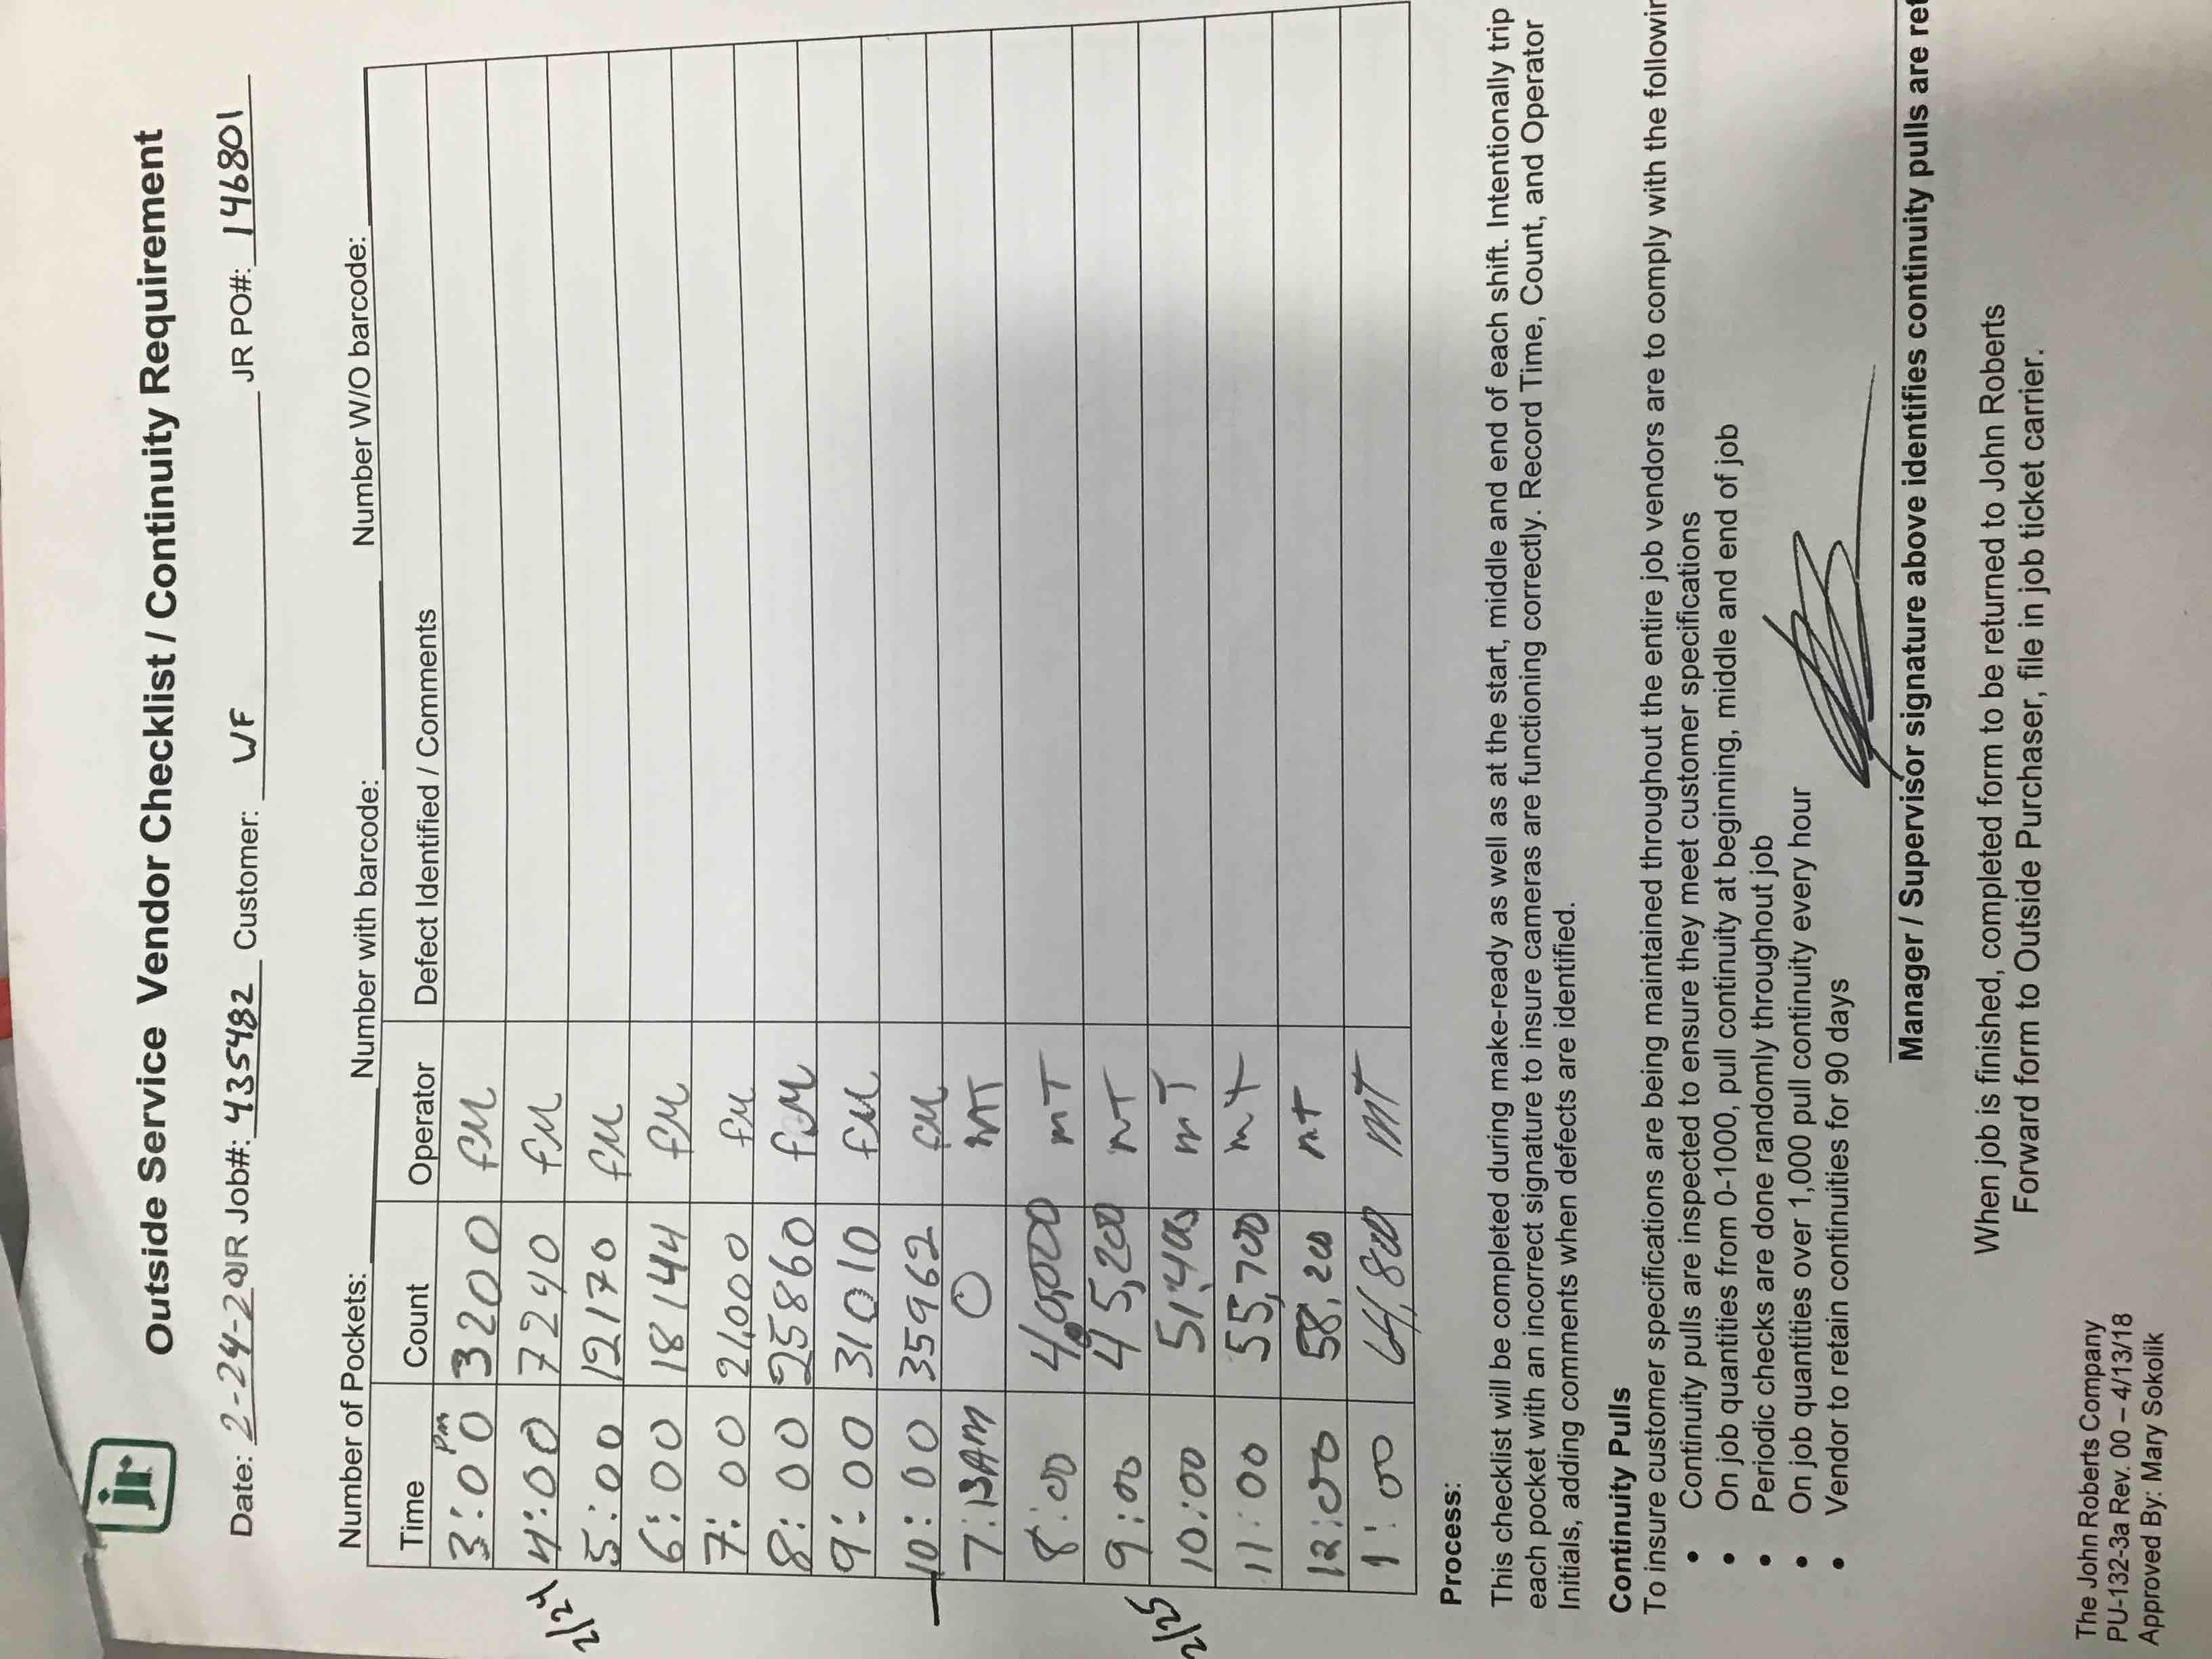 jr
Outside Service Vendor Checklist / Continuity Requirement
Date: 2-24-20 JR Job#: 435482 Customer: WF JR PO#: 146801
Number of Pockets: Number with barcode: Number W/O barcode:
Time Count Operator Defect Identified / Comments
3:00 Pm 3200 fM
2/24 4:00 7240 fM
5:00 12170 fM
6:00 18144 fM
7:00 21,000 fM
8:00 25860 fM
9:00 31010 fM
10:00 35962 fM
7:13AM 0 MT
8:00 40,000 mT
9:00 45,200 mT
2/25 10:00 51,400 mT
11:00 55,700 mt
12:00 58,200 mt
1:00 64,800 MT
Process:
This checklist will be completed during make-ready as well as at the start, middle and end of each shift. Intentionally trip
each pocket with an incorrect signature to insure cameras are functioning correctly. Record Time, Count, and Operator
Initials, adding comments when defects are identified.
Continuity Pulls
To insure customer specifications are being maintained throughout the entire job vendors are to comply with the followin
• Continuity pulls are inspected to ensure they meet customer specifications
• On job quantities from 0-1000, pull continuity at beginning, middle and end of job
• Periodic checks are done randomly throughout job
• On job quantities over 1,000 pull continuity every hour
• Vendor to retain continuities for 90 days
Manager / Supervisor signature above identifies continuity pulls are ret
When job is finished, completed form to be returned to John Roberts
Forward form to Outside Purchaser, file in job ticket carrier.
The John Roberts Company
PU-132-3a Rev. 00 – 4/13/18
Approved By: Mary Sokolik